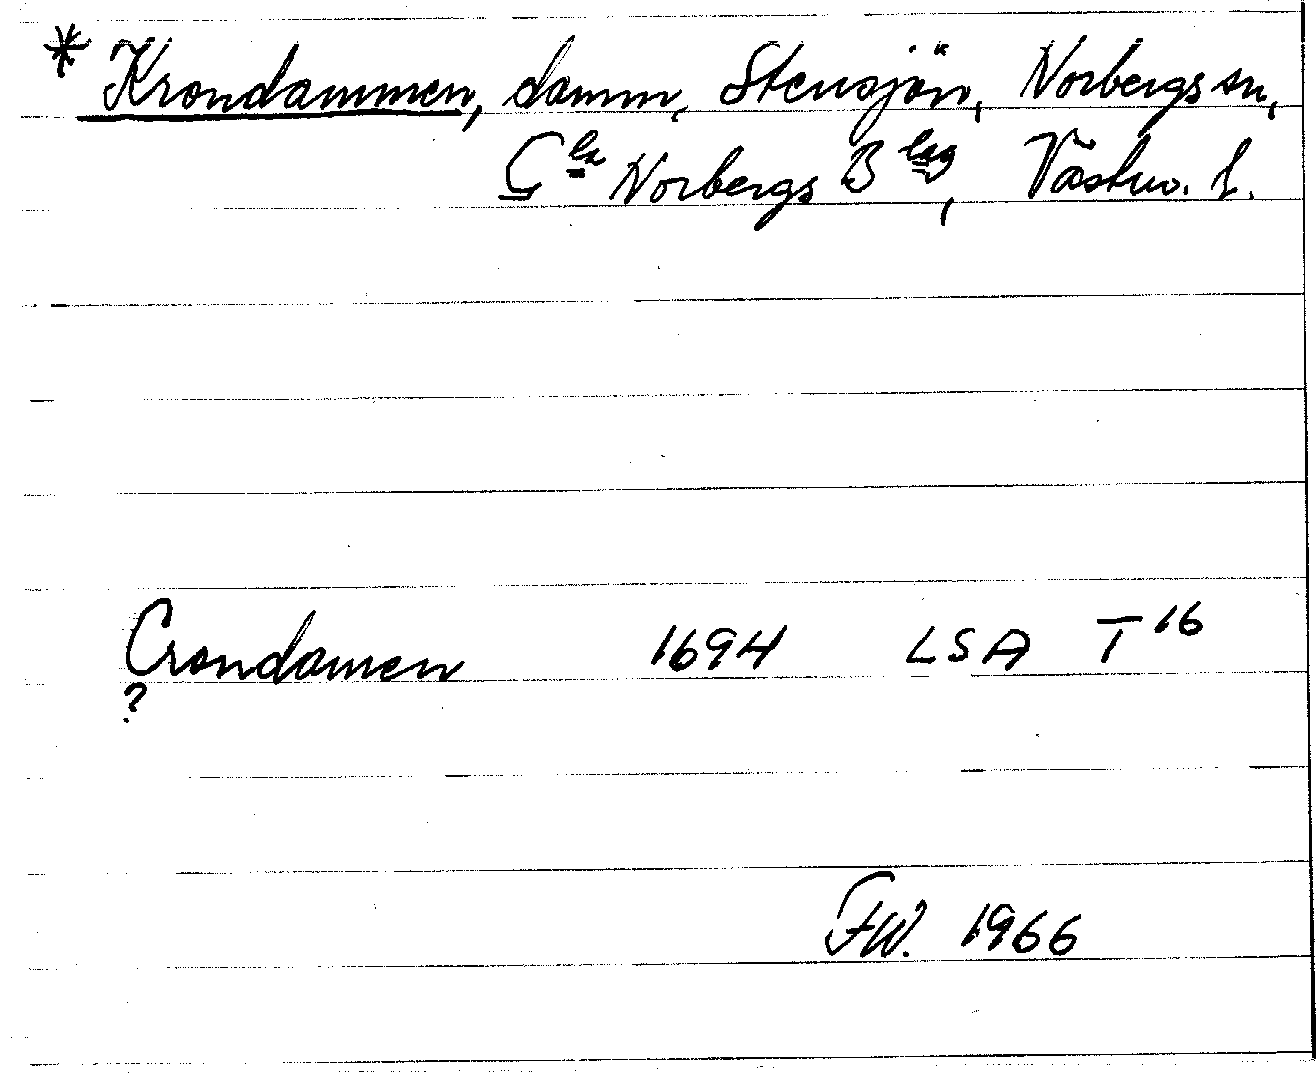 * Krondammen, damm, Stensjön, Norbergs sn,
Gla Norbergs Blag, Västm. l.
Crondamen 1694 LSA T16
?
FW. 1966